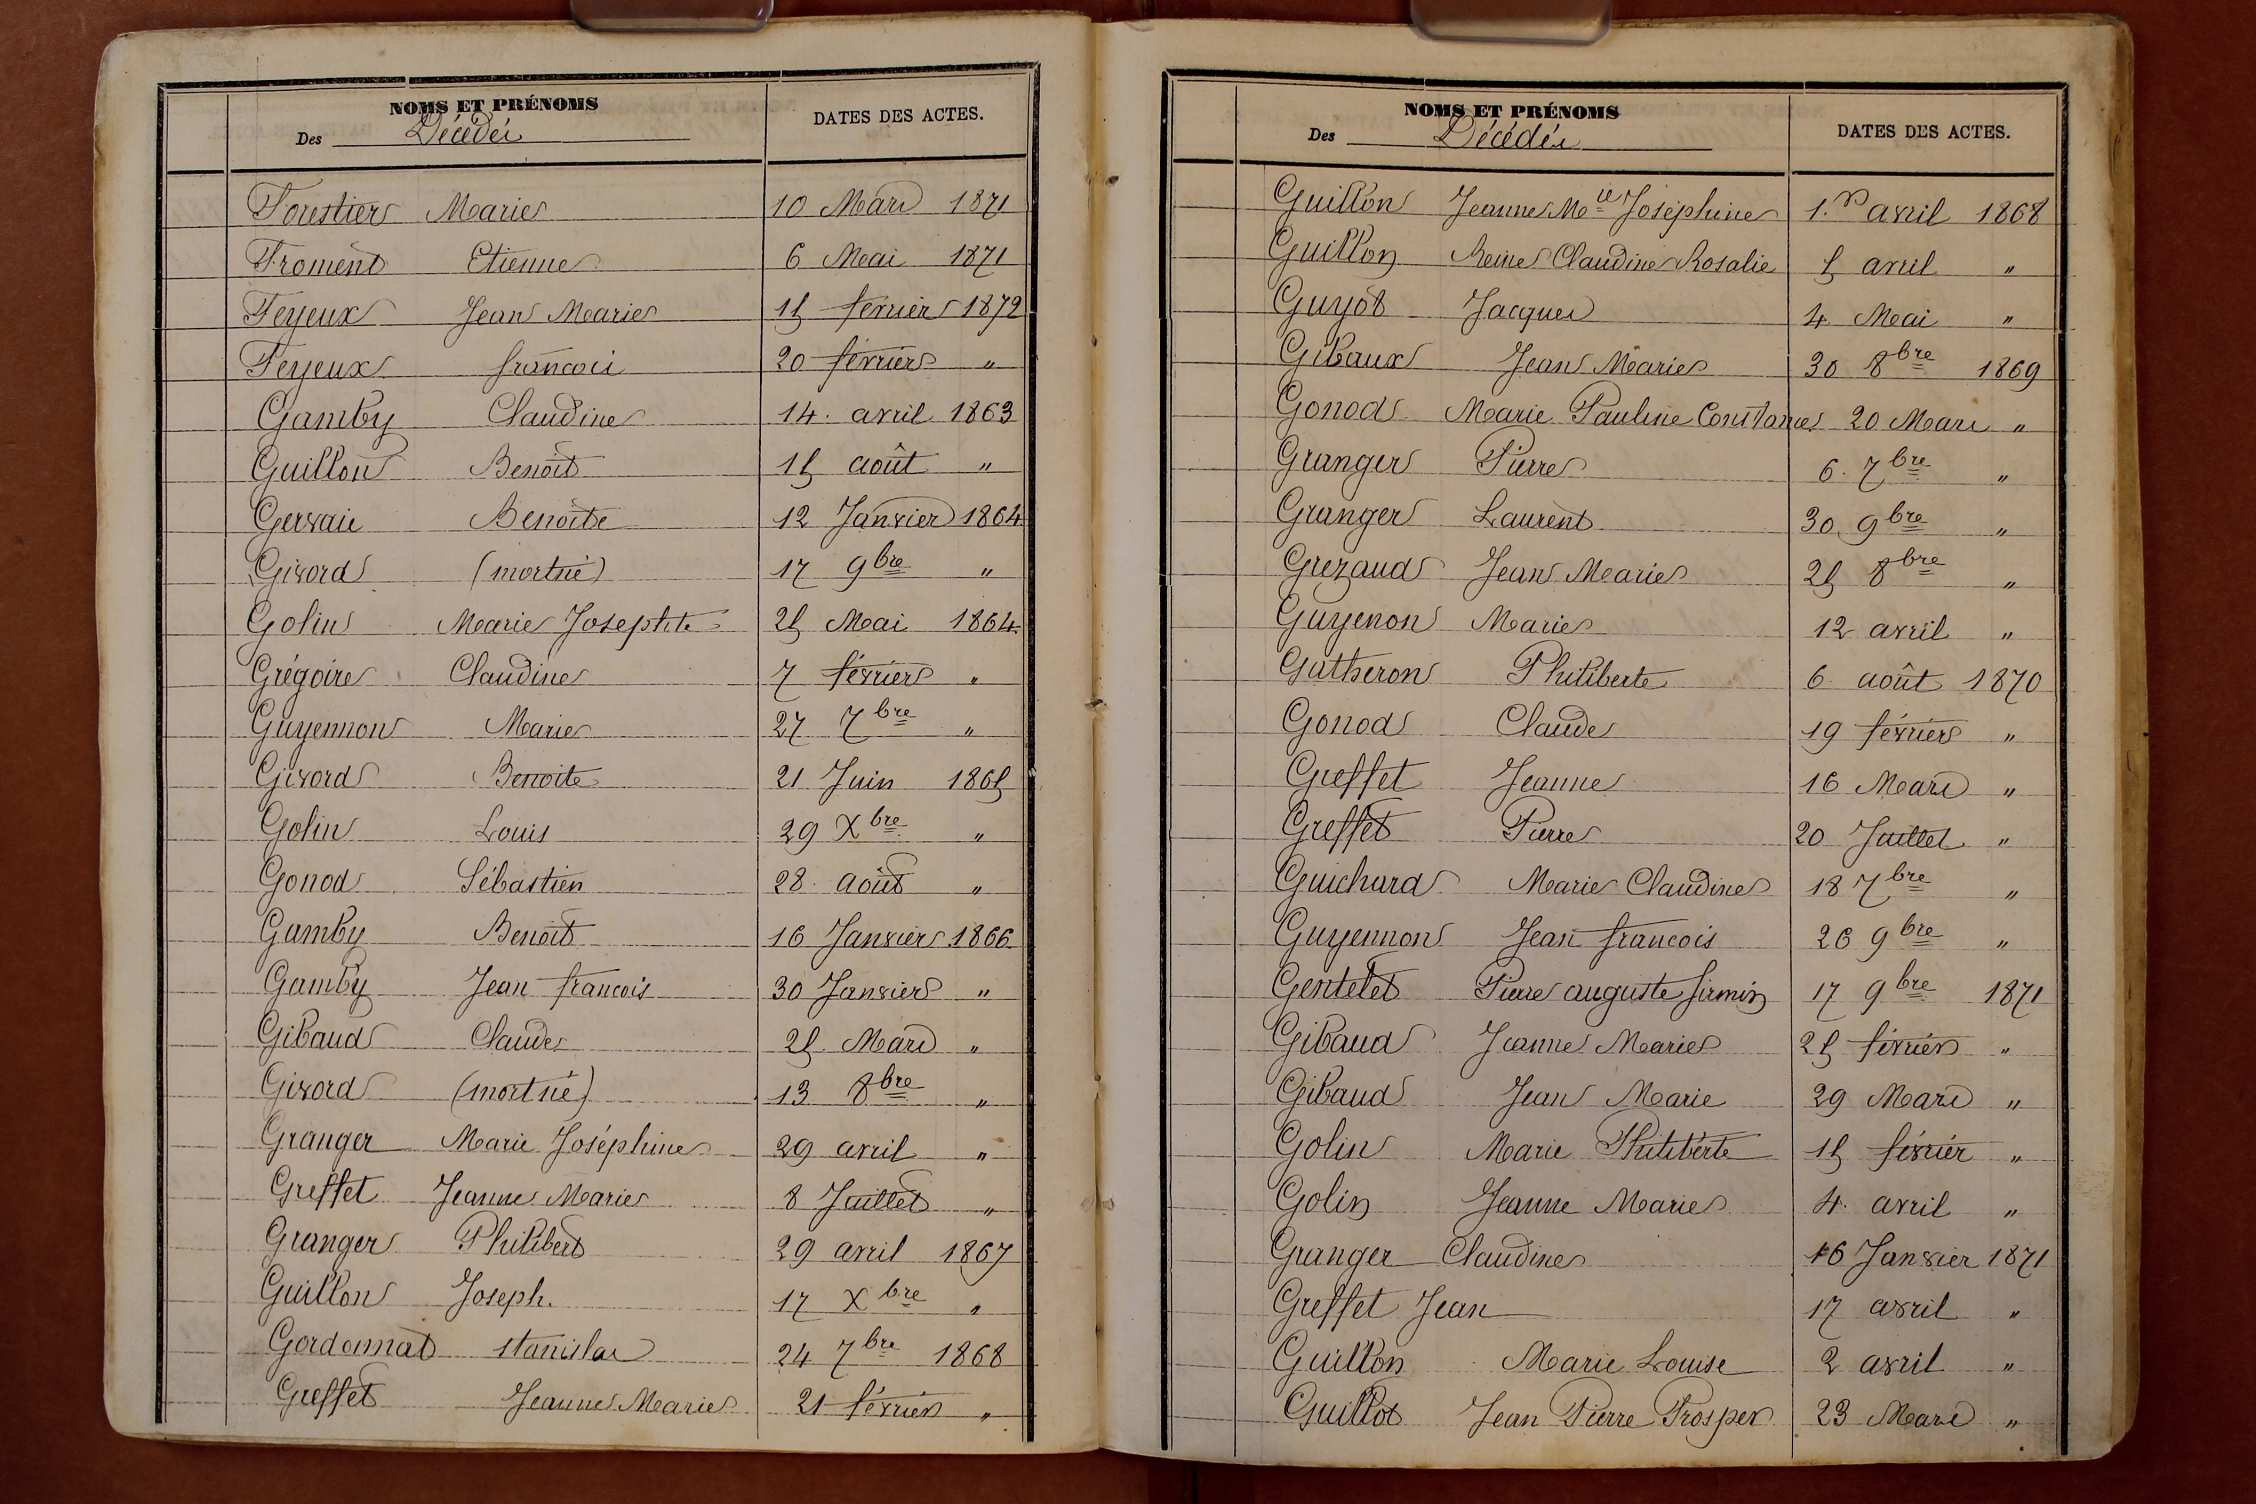 NOMS ET PRÉNOMS
Des Décédés
DATES DES ACTES.
Forestier Marie 10 Mars 1871
Froment Etienne 6 Mai 1871
Feyeux Jean Marie 15 février 1872
Feyeux francois 20 février "
Gamby Claudine 14 avril 1863
Guillon Benoit 15 août "
Gervais Benoite 12 Janvier 1864
Givord (mortné) 17 9bre "
Golin Marie Josephte 25 Mai 1864
Grégoire Claudine 7 février "
Guyennon Marie 27 7bre "
Givord Benoite 21 Juin 1865
Golin Louis 29 Xbre "
Gonod Sébastien 28 août "
Gamby Benoit 16 Janvier 1866
Gamby Jean francois 30 Janvier "
Gibaud Claude 25 Mars "
Givord (mort né) 13 8bre "
Granger Marie Joséphine 29 avril "
Greffet Jeanne Marie 8 Juillet "
Granger Philibert 29 avril 1867
Guillon Joseph. 17 Xbre "
Gordonnat stanislas 24 7bre 1868
Greffet Jeanne Marie 21 février "
NOMS ET PRÉNOMS
Des Décédés
DATES DES ACTES.
Guillon Jeanne Mie Joséphine 1.er avril 1868
Guillon Reine Claudine Rosalie 5 avril "
Guyot Jacques 4 Mai "
Gibaux Jean Marie 30 8bre 1869
Gonod Marie Pauline Constance 20 Mars "
Granger Pierre 6 7bre "
Granger Laurent 30 9bre "
Grezaud Jean Marie 25 8bre "
Guyenon Marie 12 avril "
Gatheron Philiberte 6 août 1870
Gonod Claude 19 février "
Greffet Jeanne 16 Mars "
Greffet Pierre 20 Juillet "
Guichard Marie Claudine 18 7bre "
Guyennon Jean francois 26 9bre "
Gentelet Pierre auguste firmin 17 9bre 1871
Gibaud Jeanne Marie 25 février "
Gibaud Jean Marie 29 Mars "
Golin Marie Philiberte 15 février "
Golin Jeanne Marie 4 avril "
Granger Claudine 16 Janvier 1871
Greffet Jean 17 avril "
Guillon Marie Louise 2 avril "
Guillot Jean Pierre Prosper 23 Mars "